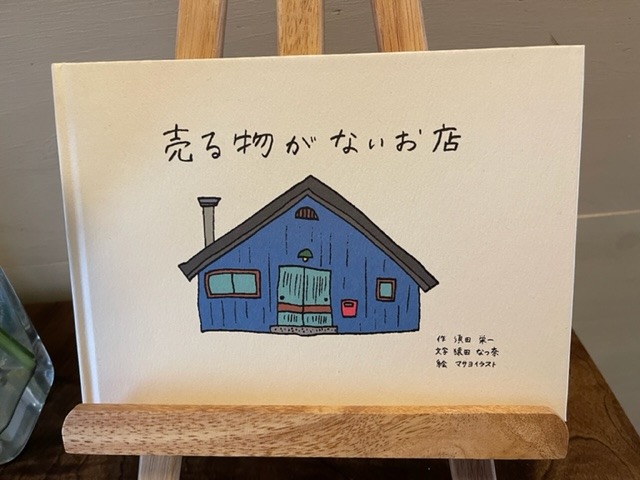 売る物がないお店
作 濱田 栄一
文字 猿田 なつ奈
絵 マサヨイラスト